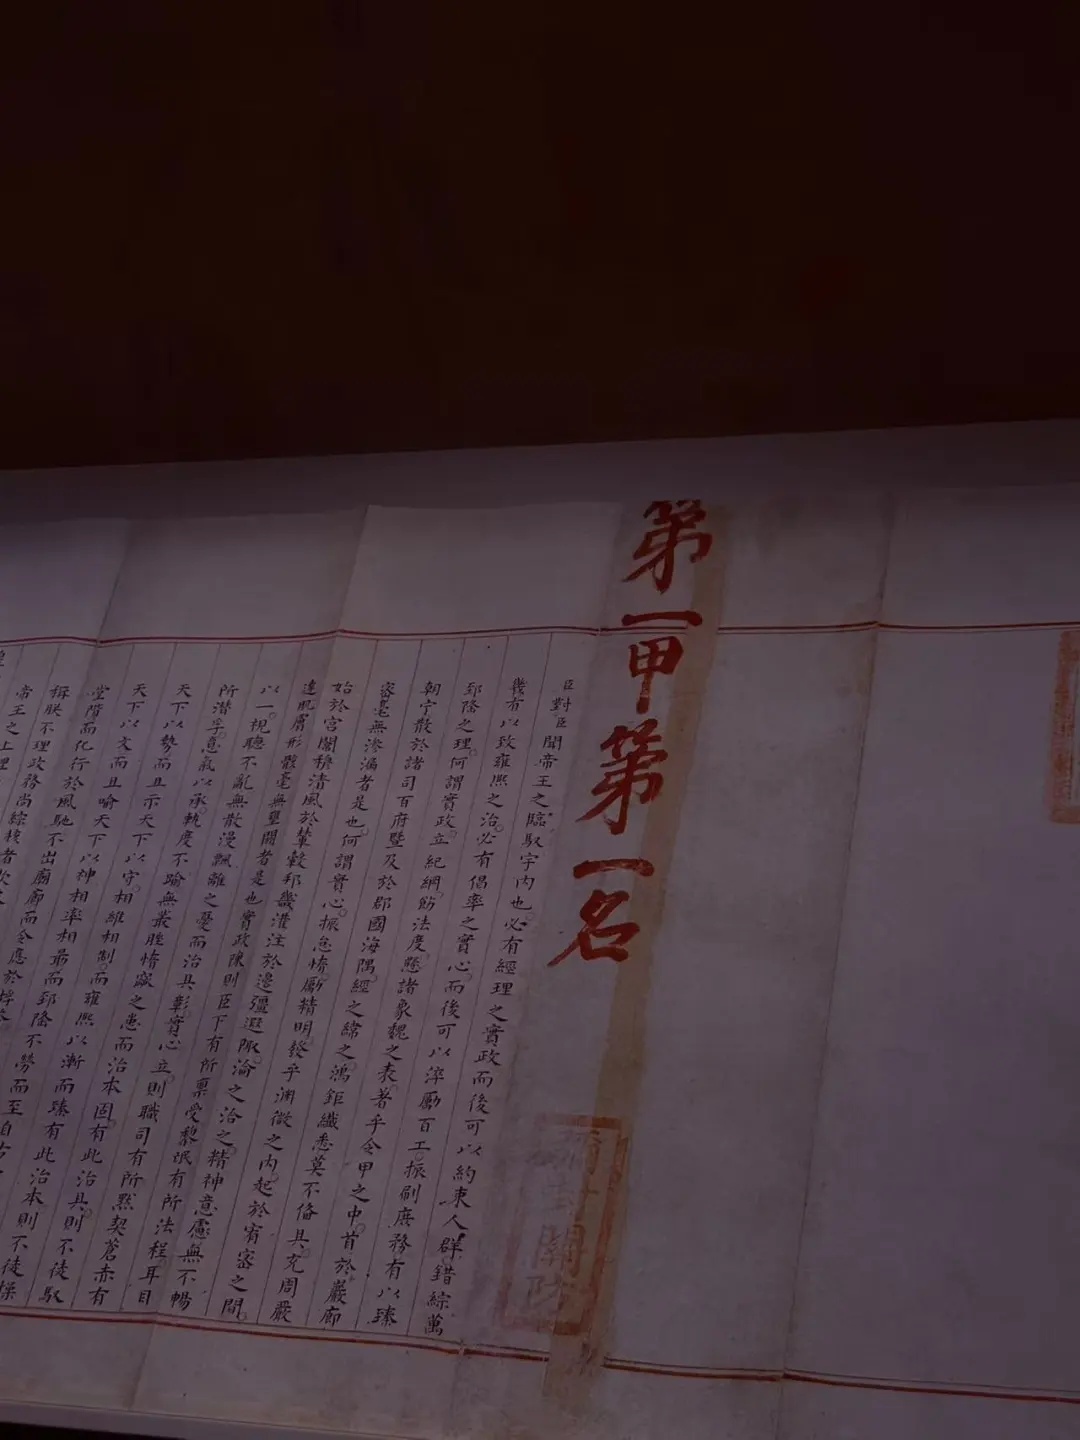 第一甲第一名
彌封關防
臣對臣聞帝王之臨馭宇内也必有經理之實政而後可以約束人群錯綜萬
幾有以致雍熙之治必有倡率之實心而後可以淬勵百工振刷庶務有以臻
郅隆之理何謂實政立紀綱飭法度懸諸象魏之表著乎令甲之中首於巖廊
朝宁散於諸司百府暨及於郡國海隅經之緯之鴻鉅纖悉莫不俻具充周嚴
密毫無滲漏者是也何謂實心振怠惰勵精明發乎淵微之内起於宥密之間
始於宮闈穆清風於輦轂邦畿灌注於邊疆遐陬淪之洽之精神意慮無不暢
達肌膚形骸毫無壅閼者是也實政陳則臣下有所稟受黎氓有所法程耳目
以一視聽不亂無散漫飄離之憂而治具彰實心立則職司有所黙契蒼赤有
所潜孚意氣以承軌度不踰無叢脞惰窳之患而治本固有此治具則不徒馭
天下以勢而且示天下以守相維相制而雍熙以漸而臻有此治本則不徒操
天下以文而且喻天下以神相率相勗而郅隆不勞而至自古
堂階而化行於風馳不出廟廊而令應於桴答
稱朕不理政務尚綜核者欤
帝王之上理